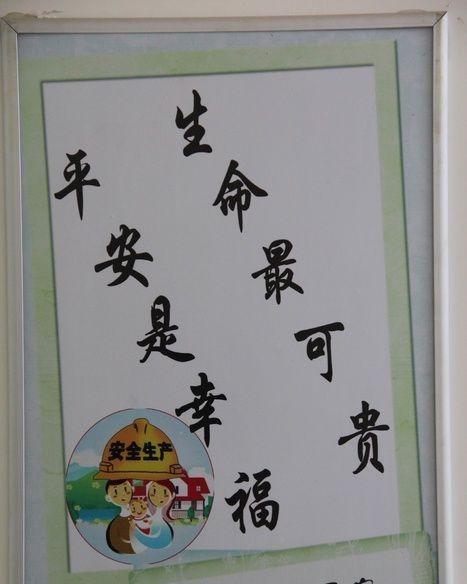 生命最可贵
平安是幸福
安全生产